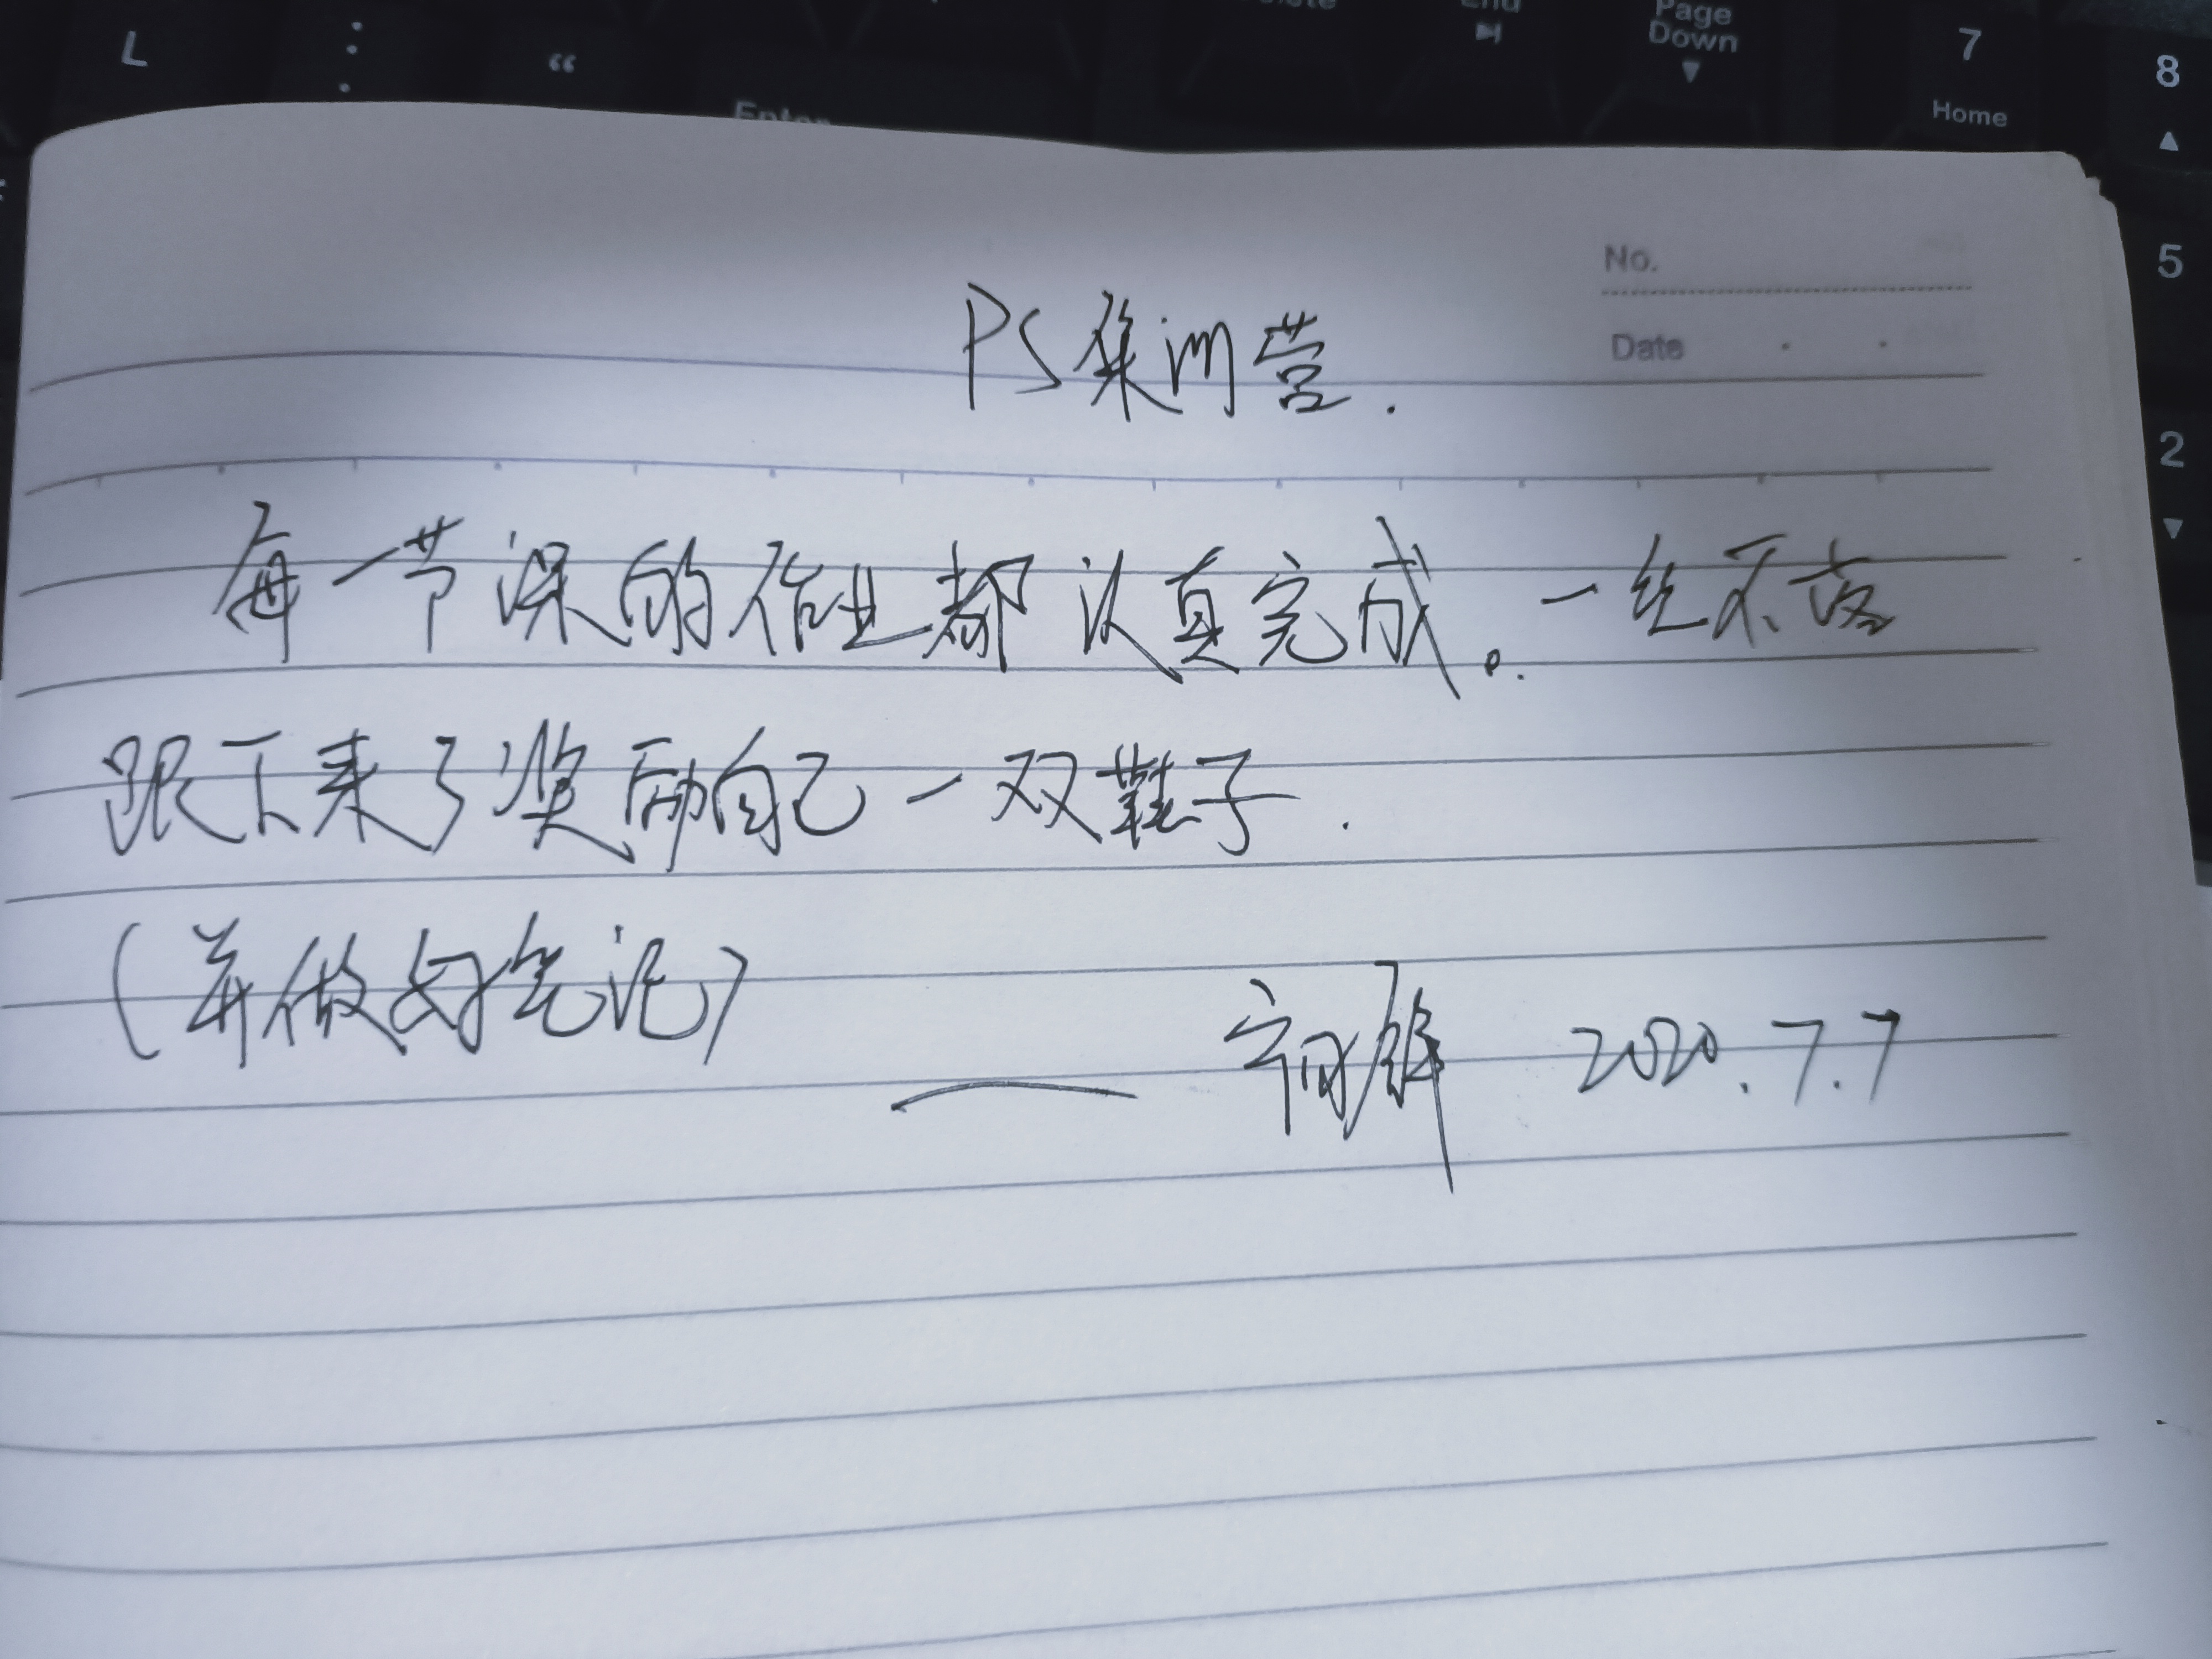 L : “ Enter Delete End Page Down 7 Home 8
5
2
No.
Date . .
PS集训营.
每一节课的作业都认真完成。. 一丝不落
跟下来了奖励自己一双鞋子.
(并做好笔记)
— 2020.7.7